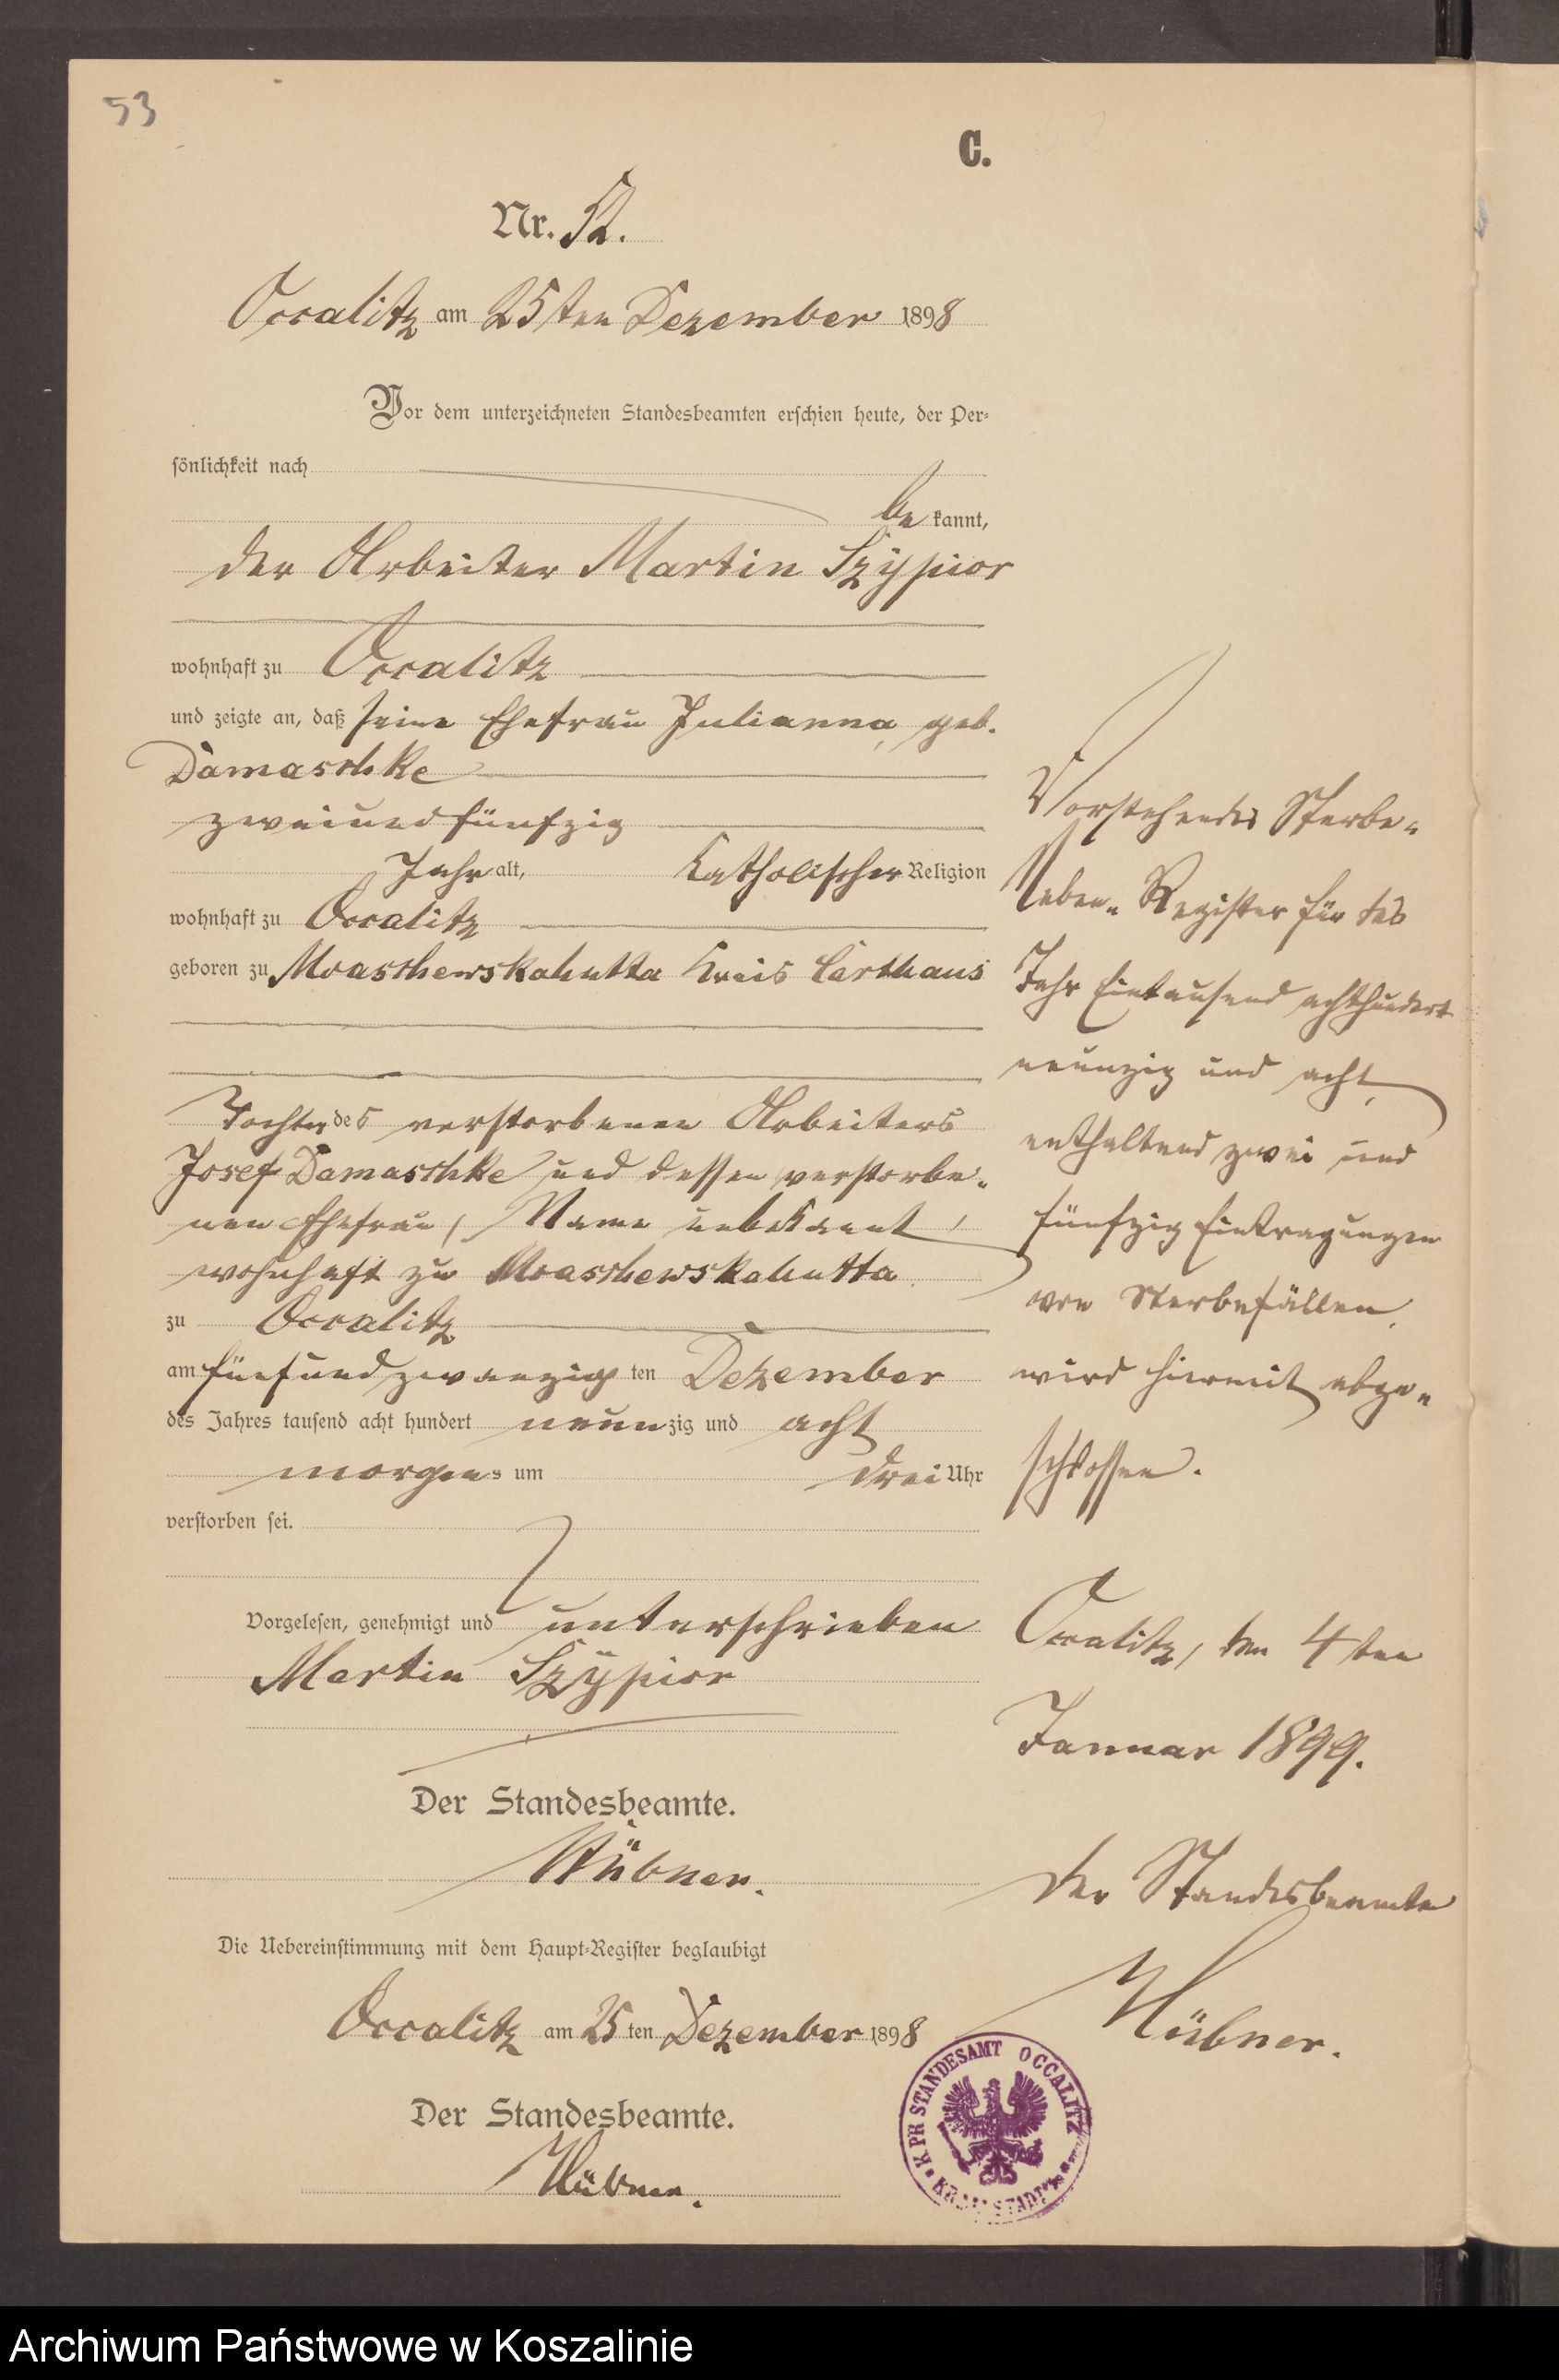 53
C.
Nr. 52.
Occalitz am 25ten Dezember 1898
Vor dem unterzeichneten Standesbeamten erschien heute, der Per=
sönlichkeit nach
be kannt,
der Arbeiter Martin Szypior
wohnhaft zu Occalitz
und zeigte an, daß seine Ehefrau Julianna, geb.
Damaschke
zweiundfünfzig
Jahr alt, katholischer Religion
wohnhaft zu Occalitz
geboren zu Moaschewskahutta Kreis Carthaus
Tochter des verstorbenen Arbeiters
Josef Damaschke und dessen verstorbe„
nen Ehefrau, Name unbekannt,
wohnhaft zu Moaschewskahutta
zu Occalitz
am fünfundzwanzig ten Dezember
des Jahres tausend acht hundert neunzig und acht
morgens um drei Uhr
verstorben sei.
Vorgelesen, genehmigt und unterschrieben
Martin Szypior
Der Standesbeamte.
Hübner.
Die Uebereinstimmung mit dem Haupt=Register beglaubigt
Occalitz am 25 ten Dezember 1898
Der Standesbeamte.
Hübner.
Vorstehendes Sterbe„
Neben„ Register für das
Jahr Eintausend achthundert
neunzig und acht,
enthaltend zwei und
fünfzig Eintragungen
von Sterbefällen,
wird hiermit abge„
schlossen.
Occalitz, den 4ten
Januar 1899.
Der Standesbeamte
Hübner.
K. PR STANDESAMT OCCALITZ
Archiwum Państwowe w Koszalinie